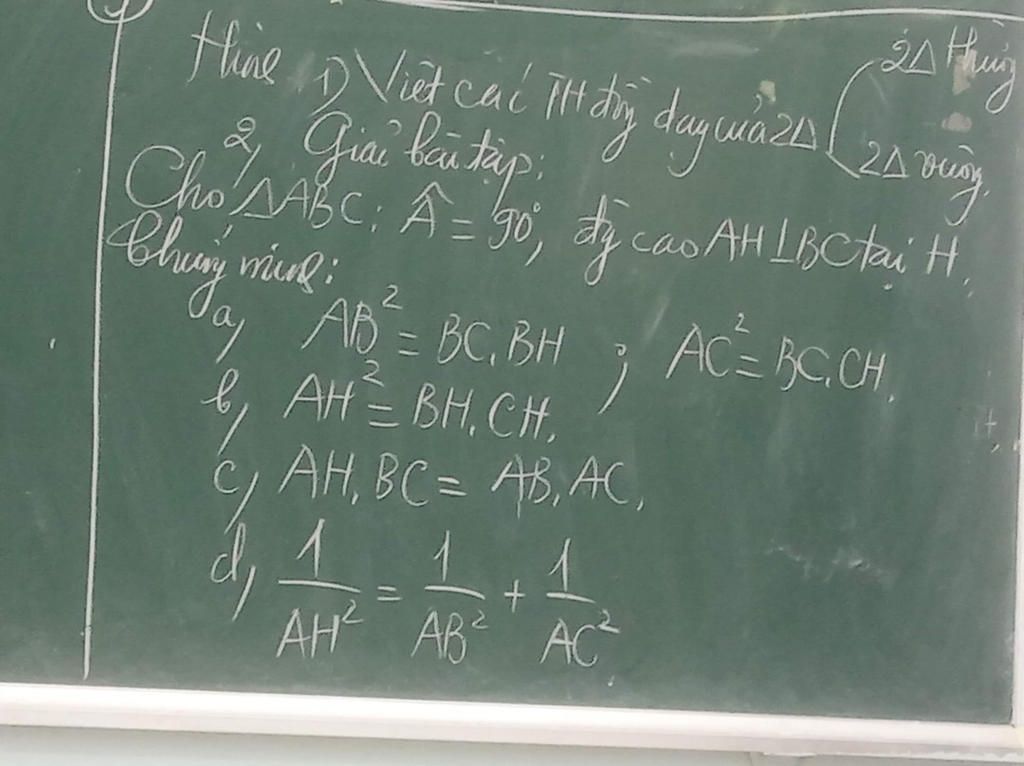 Hình 1) Viết các TH đồng dạng của 2Δ 2Δ thường
2Δ vuông.
2, Giải bài tập:
Cho ΔABC: Â = 90°, đg cao AH⊥BC tại H.
Chứng minh:
a, AB² = BC.BH ; AC² = BC.CH.
b, AH² = BH.CH.
c, AH.BC = AB.AC.
d, 1/AH² = 1/AB² + 1/AC²